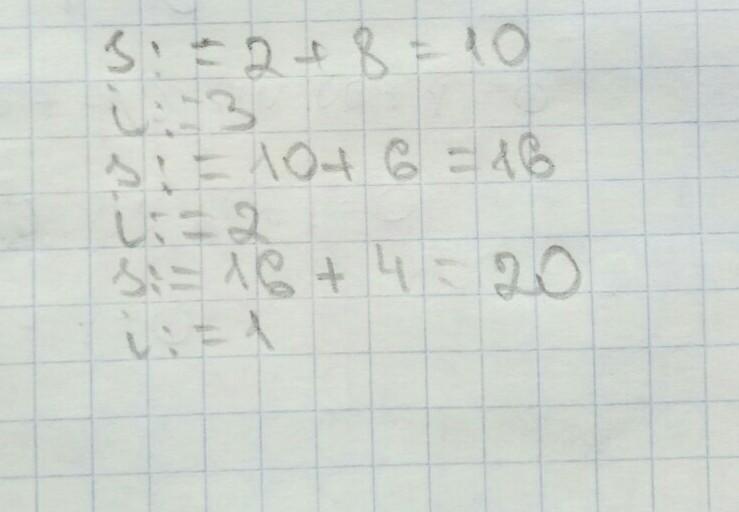 s:=2+8=10
i:=3
s:=10+6=16
i:=2
s:=16+4=20
i:=1